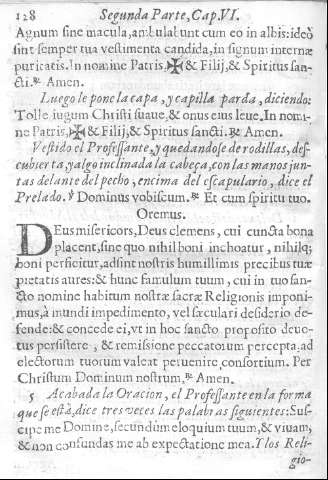 128 Segunda Parte, Cap. VI.
Agnum sine macula, ambulabunt cum eo in albis: ideò
sint semper tua vestimenta candida, in signum internæ
puritatis. In nomine Patris, ✠ & Filij, & Spiritus san-
cti. ℟ Amen.
Luego le pone la capa, y capilla parda, diciendo:
Tolle iugum Christi suaue, & onus eius leue. In nomi-
ne Patris, ✠ & Filij, & Spiritus sancti. ℟ Amen.
Vestido el Professante, y quedandose de rodillas, des-
cubierta, y algo inclinada la cabeça, con las manos jun-
tas delante del pecho, encima del escapulario, dice el
Prelado. ℣ Dominus vobiscum. ℟ Et cum spiritu tuo.
Oremus.
DEus misericors, Deus clemens, cui cuncta bona
placent, sine quo nihil boni inchoatur, nihilq;
boni perficitur, adsint nostris humillimis precibus tuæ
pietatis aures: & hunc famulum tuum, cui in tuo san-
cto nomine habitum nostræ sacræ Religionis imponi-
mus, à mundi impedimento, vel sæculari desiderio de-
fende: & concede ei, vt in hoc sancto proposito deuo-
tus persistere, & remissione peccatorum percepta, ad
electorum tuorum valeat peruenire consortium. Per
Christum Dominum nostrum. ℟ Amen.
5 Acabada la Oracion, el Professante en la forma
que se està, dice tres veces las palabras siguientes: Sus-
cipe me Domine, secundùm eloquium tuum, & viuam,
& non confundas me ab expectatione mea. Y los Reli-
gio-